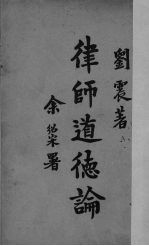 劉震著
律師道德論
余紹宋署